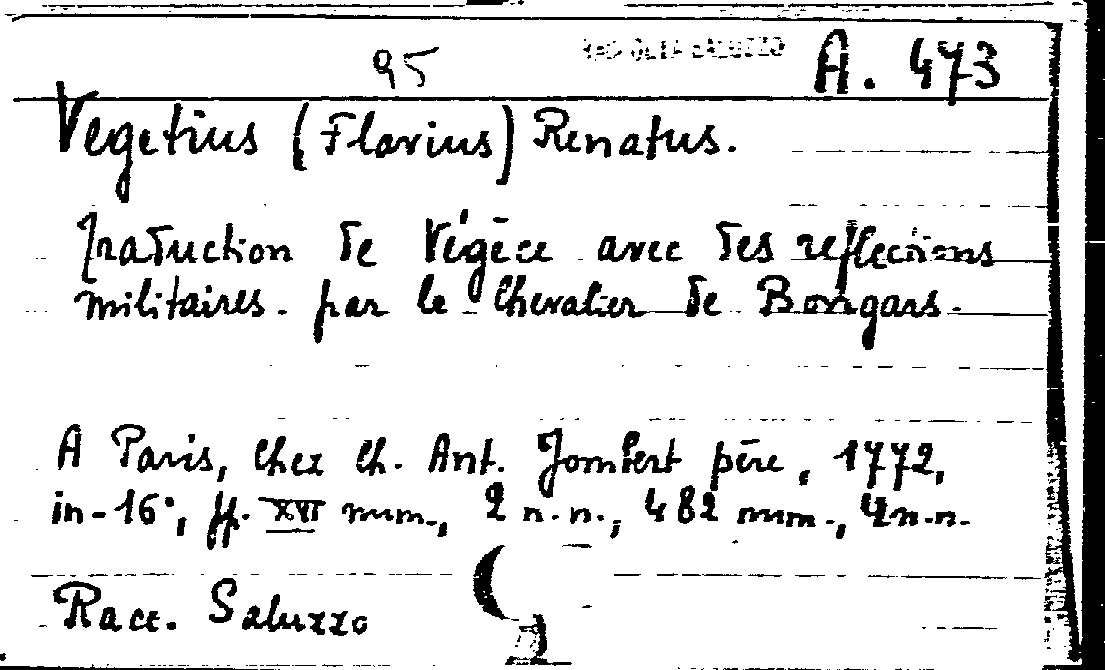 95 A. 473
Vegetius (Flavius) Renatus.
Traduction de Végèce avec des reflections
militaires. par le Chevalier de Bongars.
A Paris, chez Ch. Ant. Jombert père, 1772,
in-16°, ff. XVI num., 2 n.n., 482 num., 4 n.n.
Racc. Saluzzo